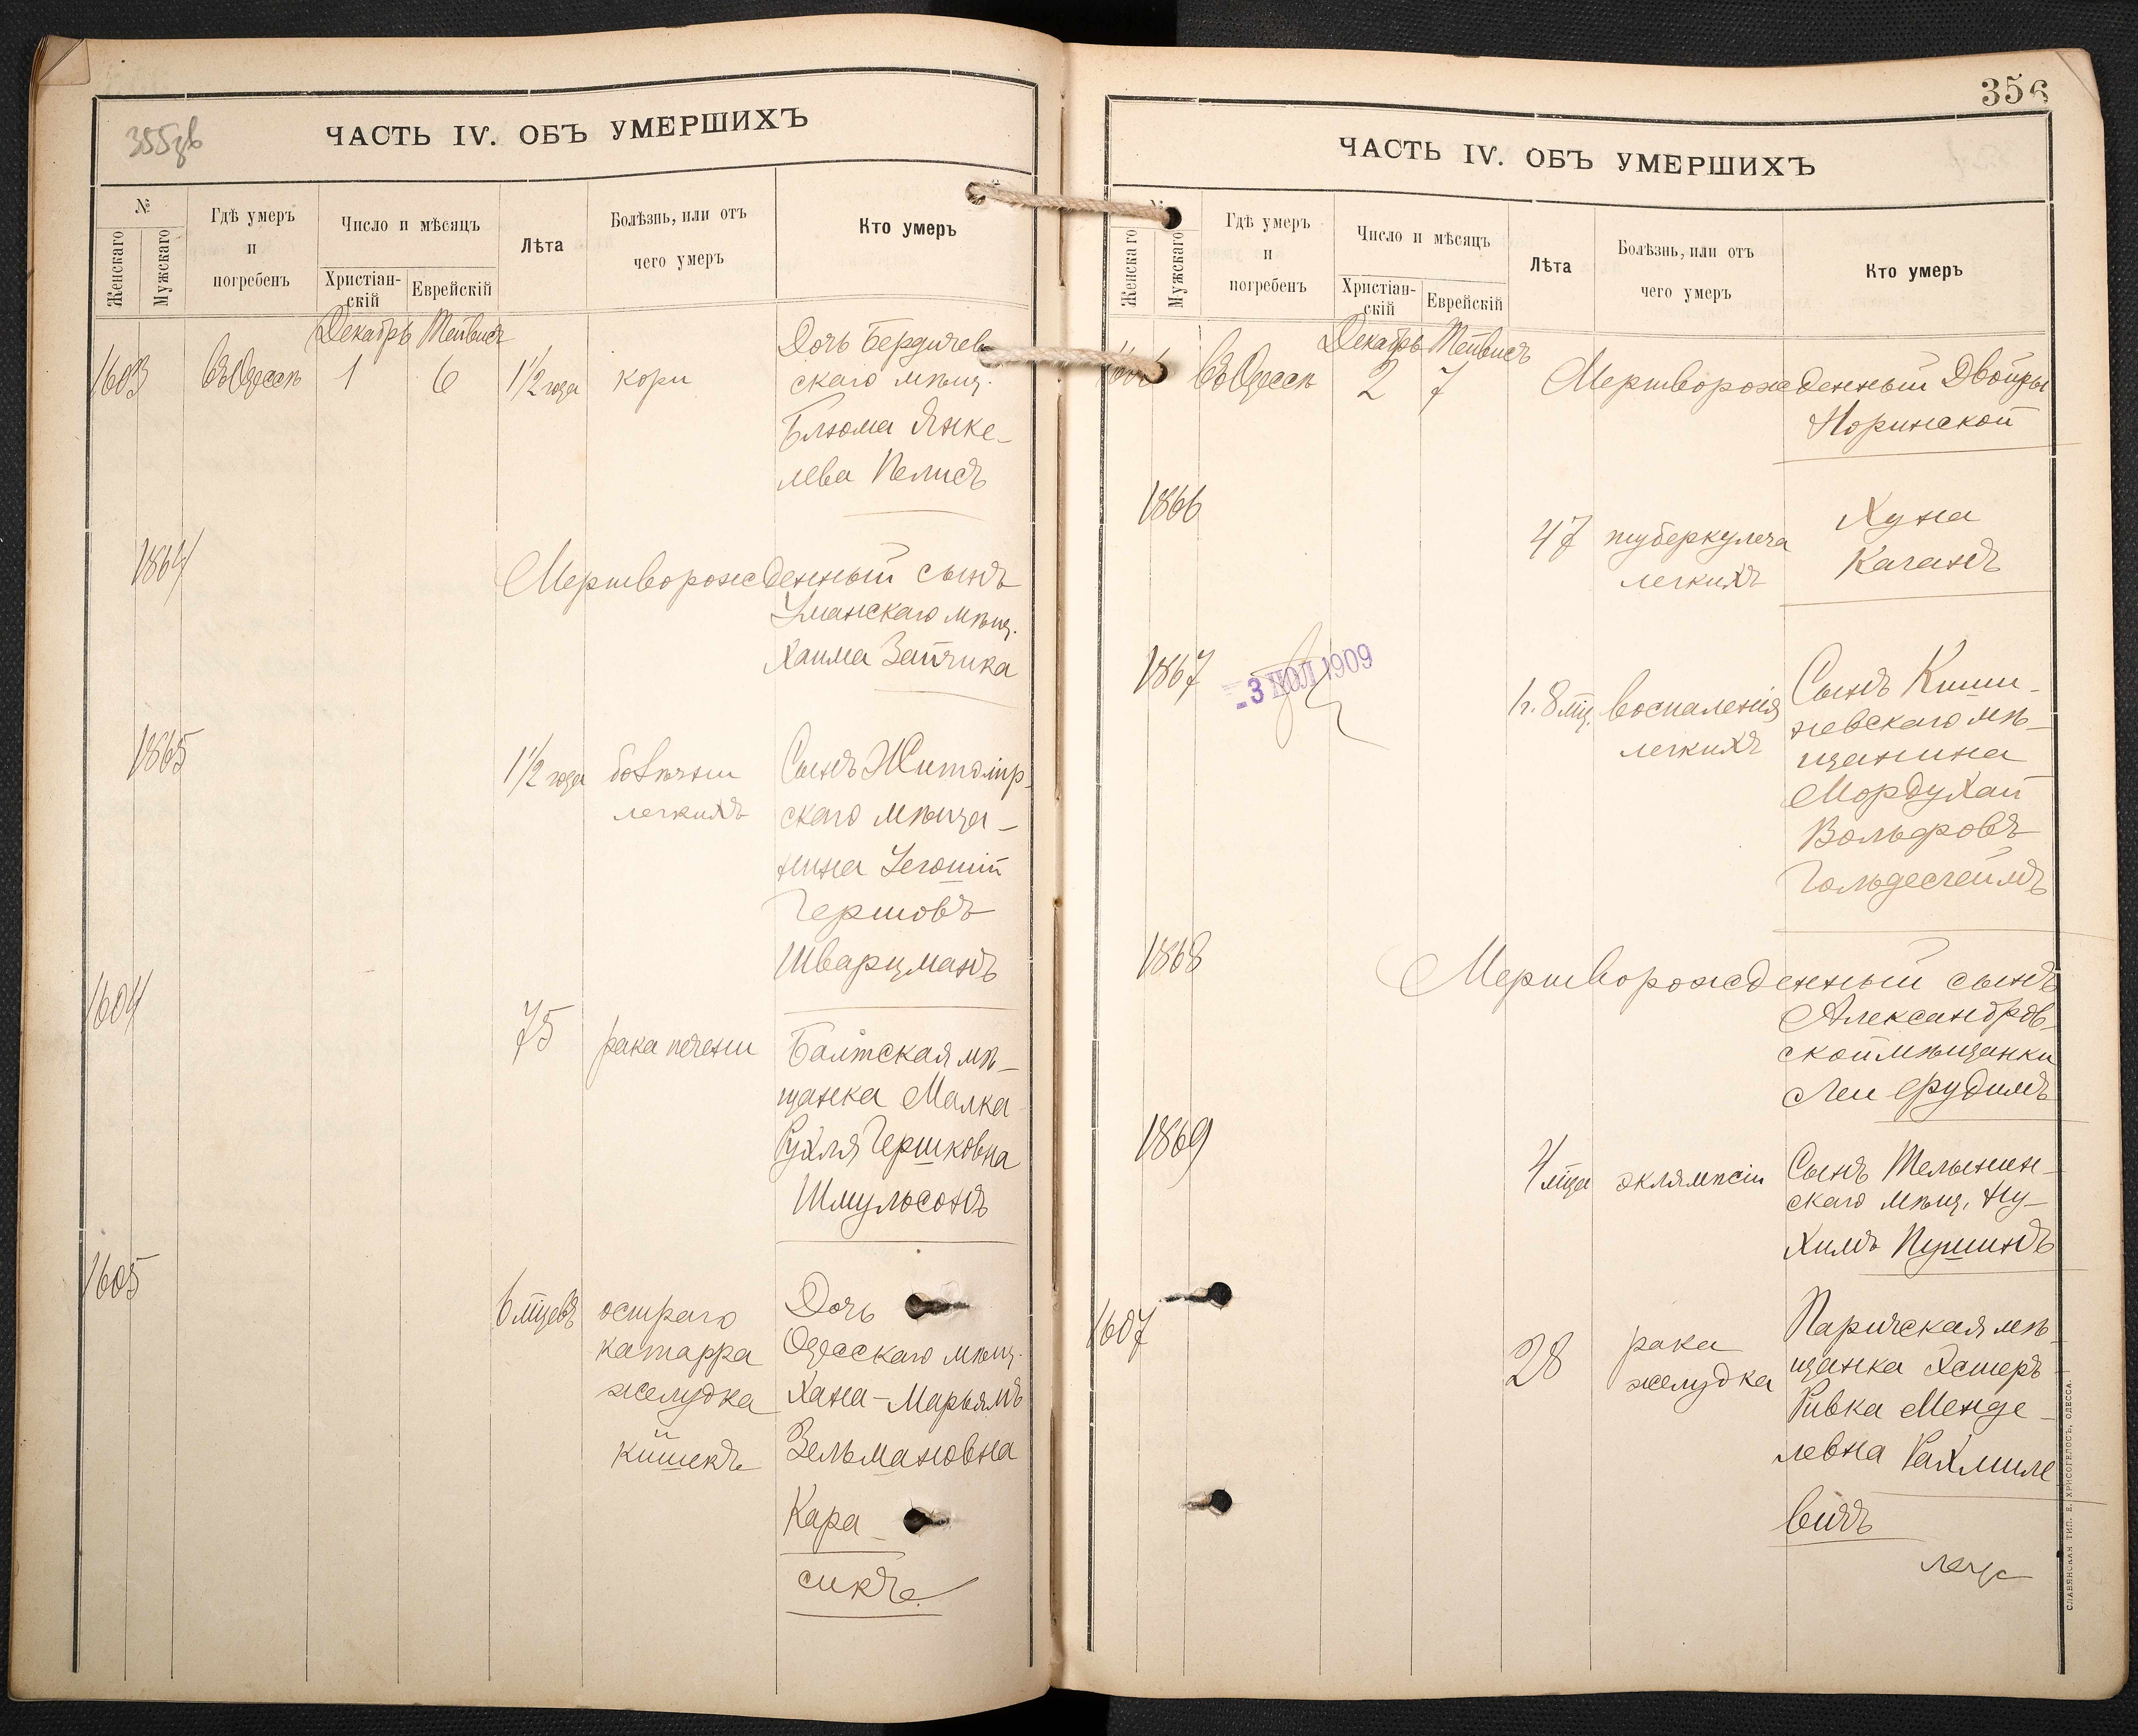 355зв
ЧАСТЬ IV. ОБЪ УМЕРШИХЪ
№
Женскаго
Мужскаго
Гдѣ умеръ
и
погребенъ
Число и мѣсяцъ
Христіан-
скій
Еврейскій
Лѣта
Болѣзнь, или отъ
чего умеръ
Кто умеръ
Декабрь Тейвисъ
1603 въ Одессѣ 1 6 1 1/2 года кори
Дочь Бердичев-
скаго мѣщ.
Блюма Янке-
лева Пелисъ
1864
Мертворожденный сынъ
Уманскаго мѣщ.
Хаима Зайчика
1865
1 1/2 года
легкихъ
Сынъ Житомір-
скаго мѣща-
нина
Гершовъ
Шварцманъ
1604
75 рака печени
Балтская мѣ-
щанка Малка
Рухля Гершковна
Шмульсонъ
1605
6 мцевъ
остраго
катарра
желудка
кишекъ
Дочь
Одесскаго мѣщ.
Хана-Марьямъ
Зельмановна
Кара-
сикъ
356
ЧАСТЬ IV. ОБЪ УМЕРШИХЪ
№
Женскаго
Мужскаго
Гдѣ умеръ
и
погребенъ
Число и мѣсяцъ
Христіан-
скій
Еврейскій
Лѣта
Болѣзнь, или отъ
чего умеръ
Кто умеръ
Декабрь Тейвисъ
1606 въ Одессѣ 2 7
Мертворожденный Двойры
Норинской
1866
47 туберкулеза
легкихъ
Хуна
Каганъ
1867
-3 ІЮЛ 1909
1 г. 8 мц. воспаленія
легкихъ
Сынъ Киши-
невскаго мѣ-
щанина
Мордухай
Вольфовъ
1868
Мертворожденный сынъ
Александров-
ской мѣщанки
Леи
1869
4 мца эклямпсіи
Сынъ
скаго мѣщ. Ну-
химъ Пушинъ
1607
28 рака
желудка
Паричская мѣ-
щанка Эстеръ
Ривка Менде-
левна Рахмиле
вичъ
СЛАВЯНСКАЯ ТИП. Е. ХРИСОГЕЛОСЪ, ОДЕССА.